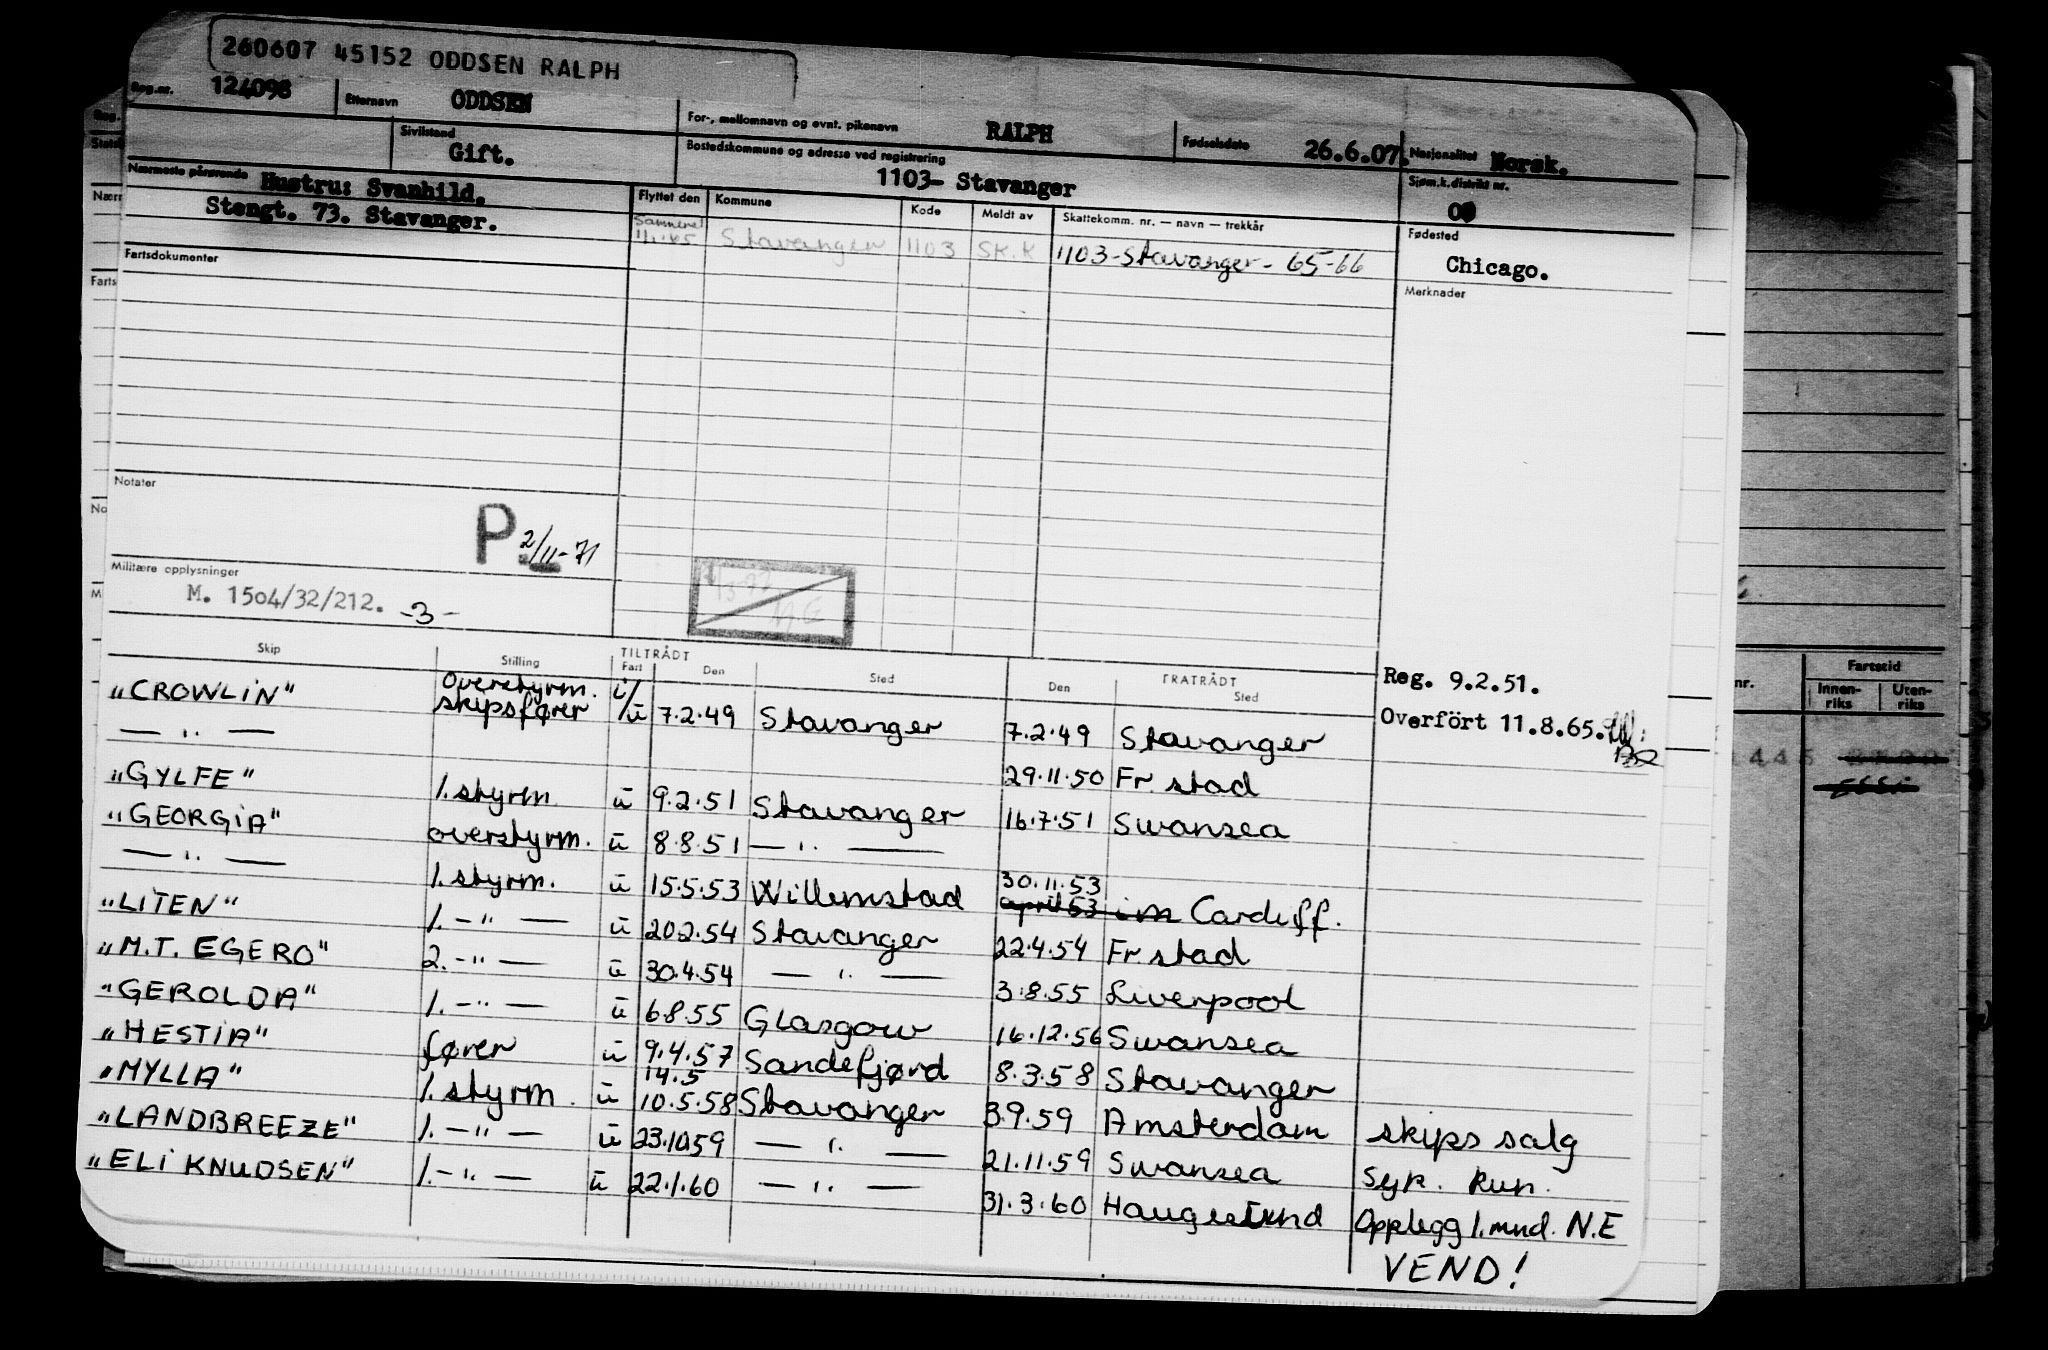 260607 45152 ODDSEN RALPH
Reg.nr. 124098 Etternavn ODDSEN For-, mellomnavn og evnt. pikenavn RALPH Fødselsdato 26.6.07. Nasjonalitet Norsk.
Sivilstand Gift. Bostedskommune og adresse ved registrering 1103- Stavanger Sjøm.k.distrikt nr.
Nærmeste pårørende Hustru: Svanhild.
Stengt. 73. Stavanger.
Flyttet den Kommune Kode Meldt av Skattekomm. nr. — navn — trekkår Fødested
Stavanger 1103 SK.K 1103-Stavanger- 65-66 Chicago.
Fartsdokumenter Merknader
Notater
P 2/11-71
Militære opplysninger
M. 1504/32/212. -3-
Skip Stilling TILTRÅDT Fart Den Sted FRATRÅDT Den Sted
Reg. 9.2.51.
Overfört 11.8.65.
"CROWLIN" Overstyrm. skipsfører i/u 7.2.49 Stavanger 7.2.49 Stavanger
— " — 29.11.50 Fr.stad
"GYLFE" 1.styrm u 9.2.51 Stavanger 16.7.51 Swansea
"GEORGIA" overstyrm. u 8.8.51 — " —
— " — 1.styrm. u 15.5.53 Willemstad 30.11.53 april 53 im Cardiff.
"LITEN" 1. — " — u 20.2.54 Stavanger 22.4.54 Fr.stad
"M.T. EGERO" 2. — " — u 30.4.54 — " — 3.8.55 Liverpool
"GEROLDA" 1. — " — u 6.8.55 Glasgow 16.12.56 Swansea
"HESTIA" fører u 9.4.57 Sandefjord 8.3.58 Stavanger
"MYLLA" 1.styrm. u 14.5 10.5.58 Stavanger 3.9.59 Amsterdam skips salg
"LANDBREEZE" 1. — " — u 23.10.59 — " — 21.11.59 Swansea Syk. Run.
"ELI KNUDSEN" 1. — " — u 22.1.60 — " — 31.3.60 Haugesund Opplegg 1.mnd. N.E
VEND!
Fartstid
Innenriks Utenriks